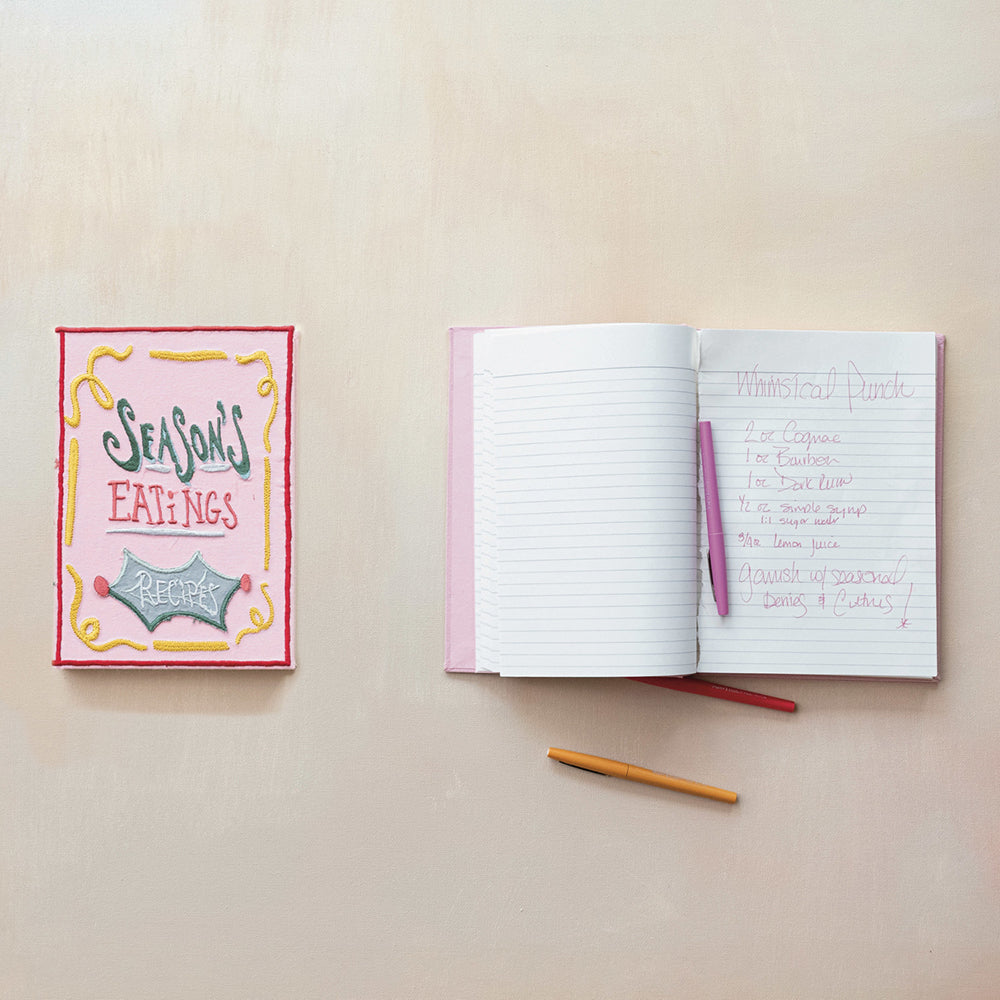 SEASON'S
EATiNGS
RECIPES
Whimsical Punch
2 oz Cognac
1 oz Bourbon
1 oz Dark Rum
1/2 oz simple syrup
1:1 sugar water
3/4 oz lemon juice
garnish w/ seasonal
Berries & Citrus! *